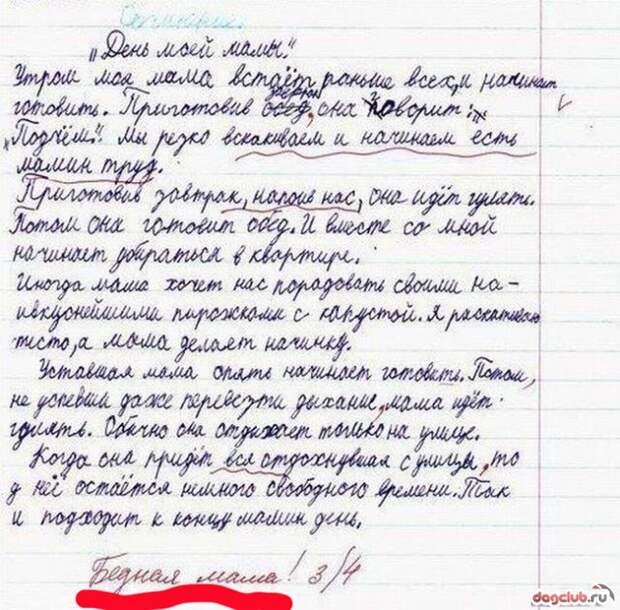 Сочинение.
„День моей мамы."
Утром моя мама встаёт раньше всех, и начинает
готовить. Приготовив завтрак, она говорит:
„Подъём!" Мы резко вскакиваем и начинаем есть
мамин труд.
Приготовив завтрак, напоив нас, она идёт гулять.
Потом она готовит обед. И вместе со мной
начинает убираться в квартире.
Иногда мама хочет нас порадовать своими на-
ивкуснейшими пирожками с капустой. Я раскатываю
тесто, а мама делает начинку.
Уставшая мама опять начинает готовить. Потом,
не успевши даже перевезти дыхание, мама идёт
гулять. Обычно она отдыхает только на улице.
Когда она придёт вся отдохнувшая с улицы, то
у неё остаётся немного свободного времени. Так
и подходит к концу мамин день.
Бедная мама! 3/4
dagclub.ru